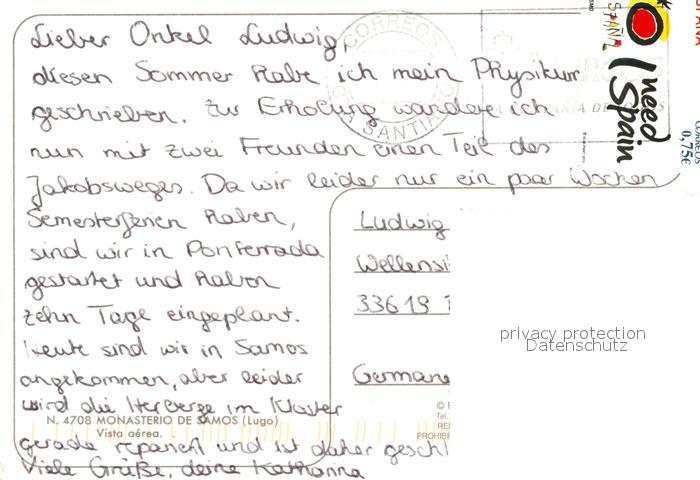 Lieber Onkel Ludwig,
diesen Sommer habe ich mein Physikum
geschrieben. Zur Erholung wandere ich
nun mit zwei Freunden einen Teil des
Jakobsweges. Da wir leider nur ein paar Wochen
Semesterferien haben,
sind wir in Ponferrada
gestartet und haben
zehn Tage eingeplant.
Heute sind wir in Samos
angekommen, aber leider
wird die Herberge im Kloster
gerade repariert und ist daher geschl
Viele Grüße, deine Katharina
Ludwig
Wellensi
33619
Germany
privacy protection
Datenschutz
N. 4708 MONASTERIO DE SAMOS (Lugo)
Vista aérea.
Tel.
PROHIB
CORREOS
SANTI
I need
Spain
ESPAÑA
CORREOS
0,75€